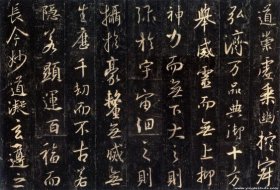 道崇虛乘幽控寂
弘濟萬品典御十方
舉威靈而無上抑
神力而無下大之則
彌於宇宙細之則
攝於豪釐無滅無
生歷千劫而不古若
隱若顯運百福而
長今妙道凝玄遵之